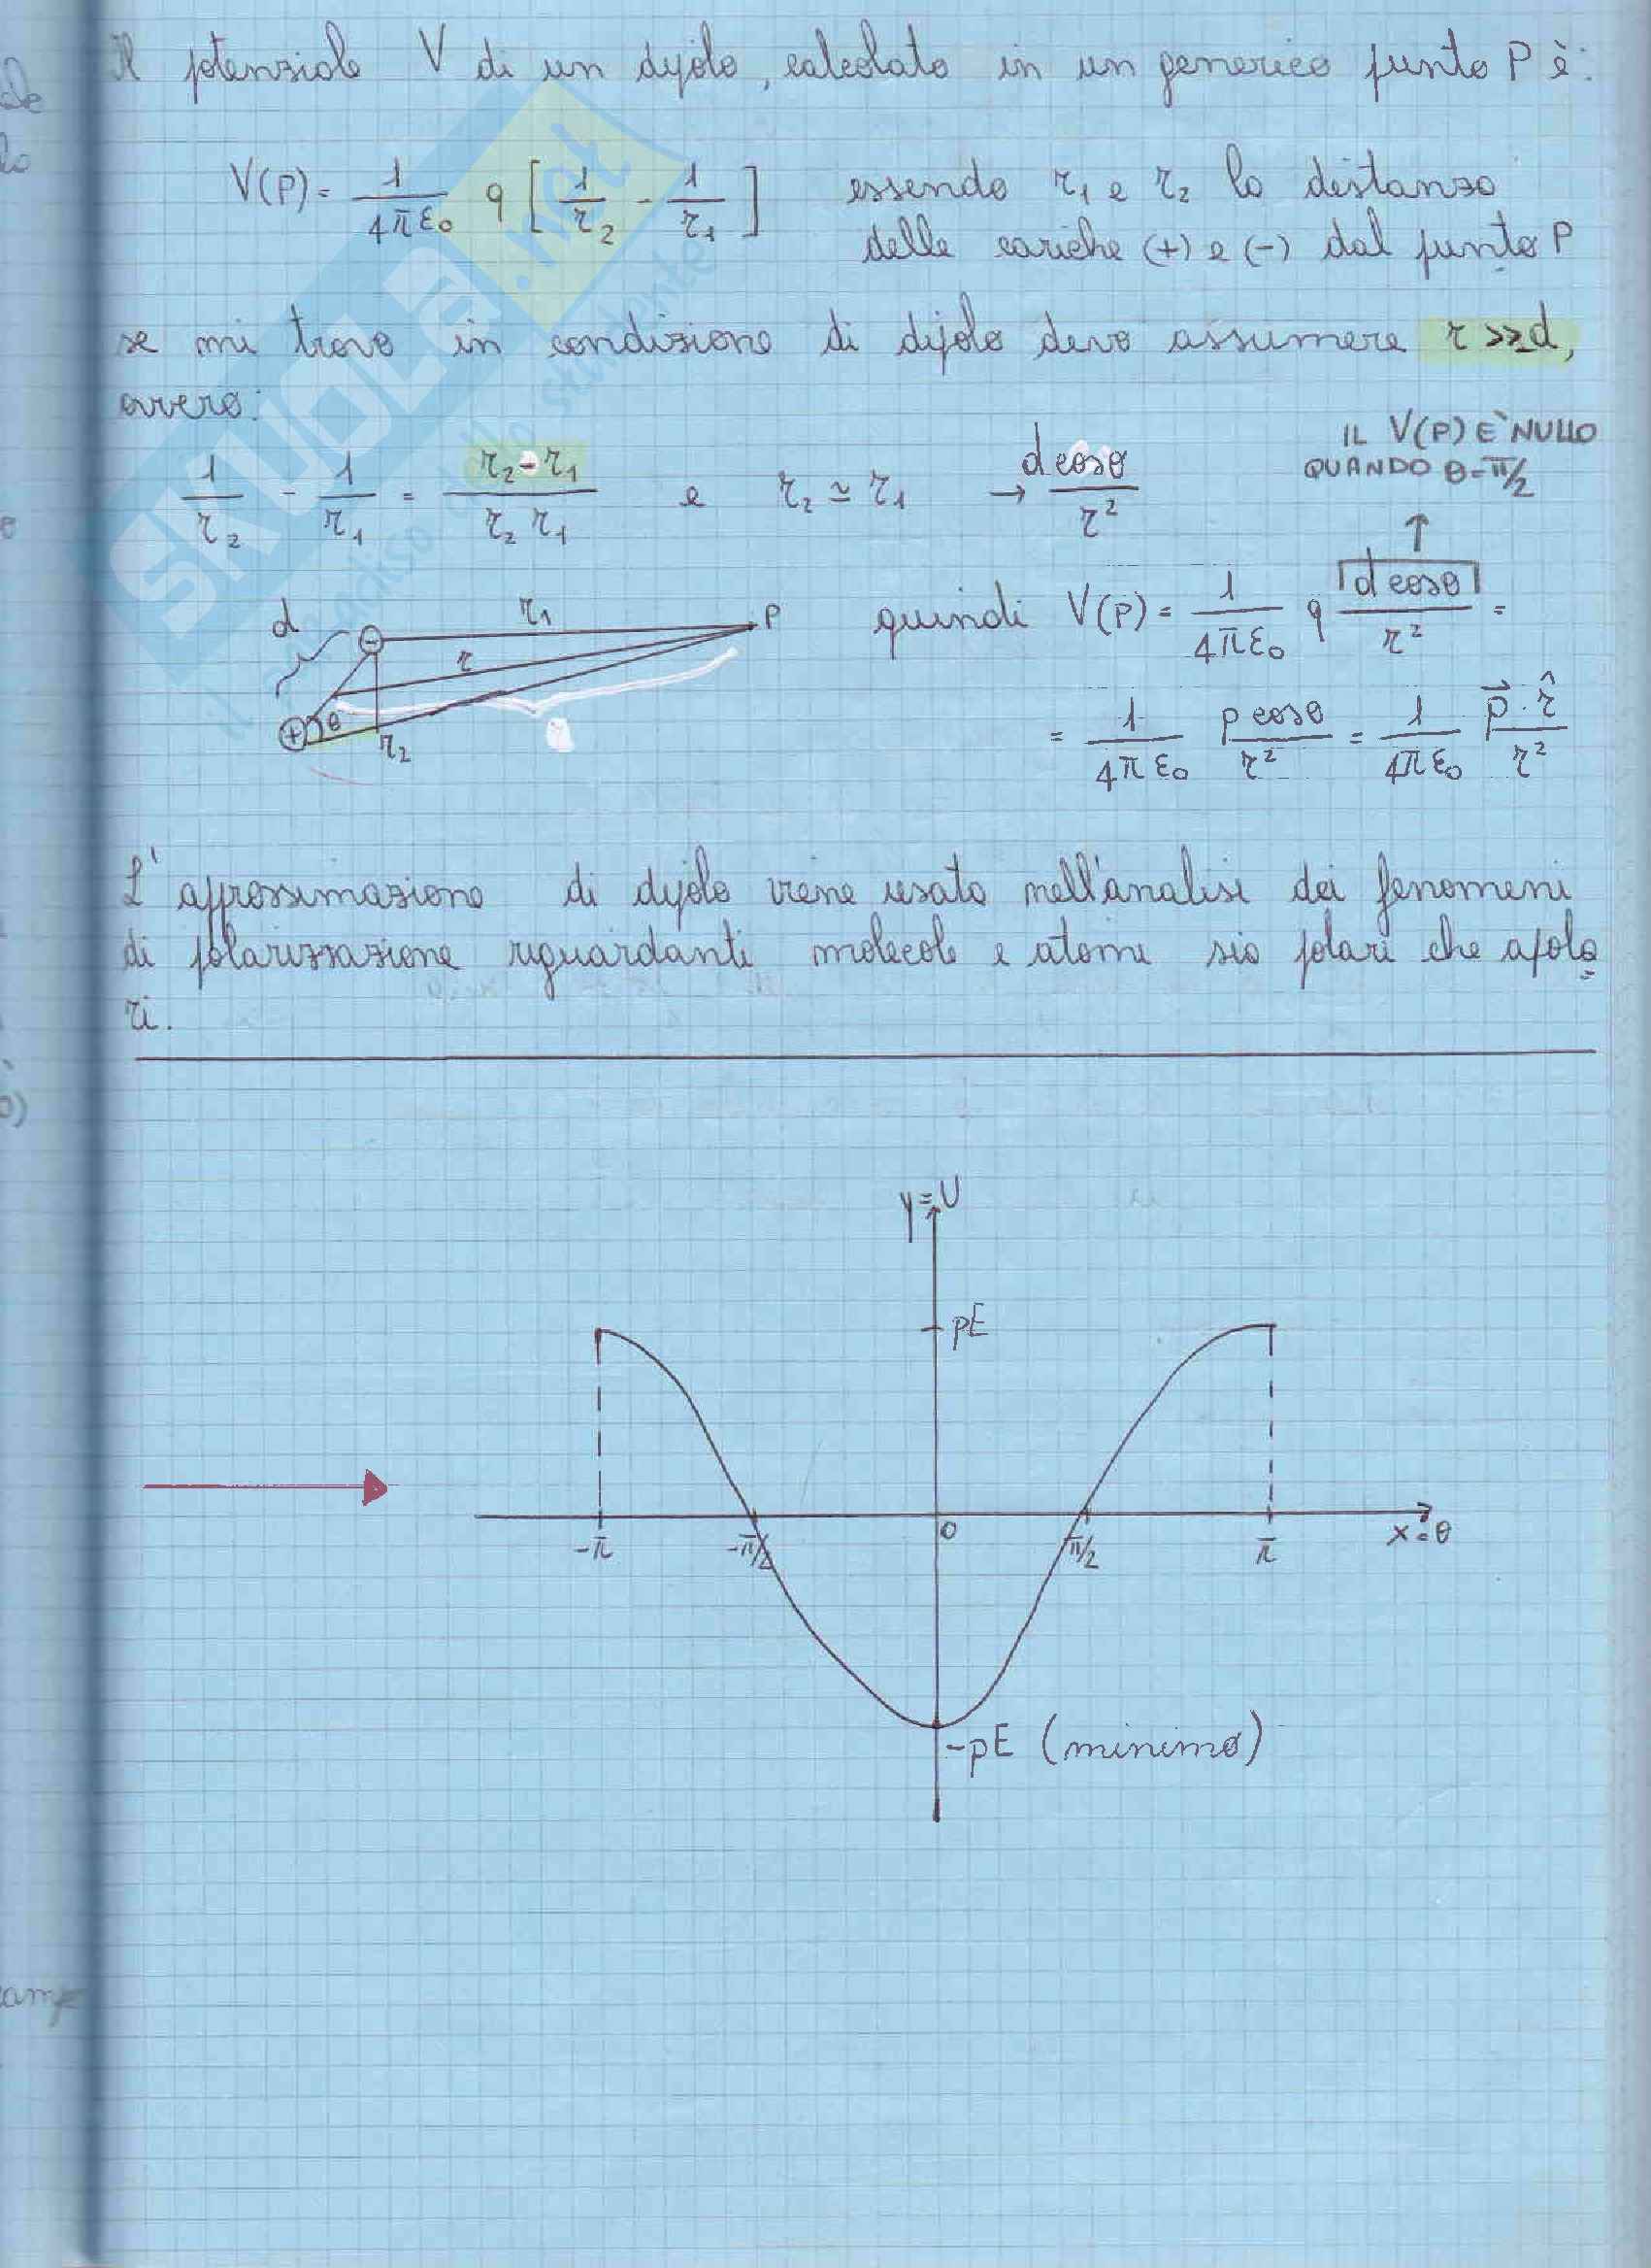 Il potenziale V di un dipolo, calcolato in un generico punto P è:
V(P) = 1/4πε₀ q [1/r₂ - 1/r₁] essendo r₁ e r₂ la distanza
delle cariche (+) e (-) dal punto P
se mi trovo in condizione di dipolo devo assumere r >> d,
avero:
1/r₂ - 1/r₁ = r₂-r₁/r₂ r₁ e r₂ ≃ r₁ → d cosθ/r²
IL V(P) È NULLO
QUANDO θ=π/2
↑
d - r₁ P
r
+ θ r₂
quindi V(P) = 1/4πε₀ q d cosθ/r² =
= 1/4πε₀ p cosθ/r² = 1/4πε₀ p⃗ · r̂/r²
L'approssimazione di dipolo viene usata nell'analisi dei fenomeni
di polarizzazione riguardanti molecole e atomi sia polari che apola=
ri.
y=U
pE
-π -π/2 0 π/2 π x=θ
-pE (minimo)
SKUOLA.net